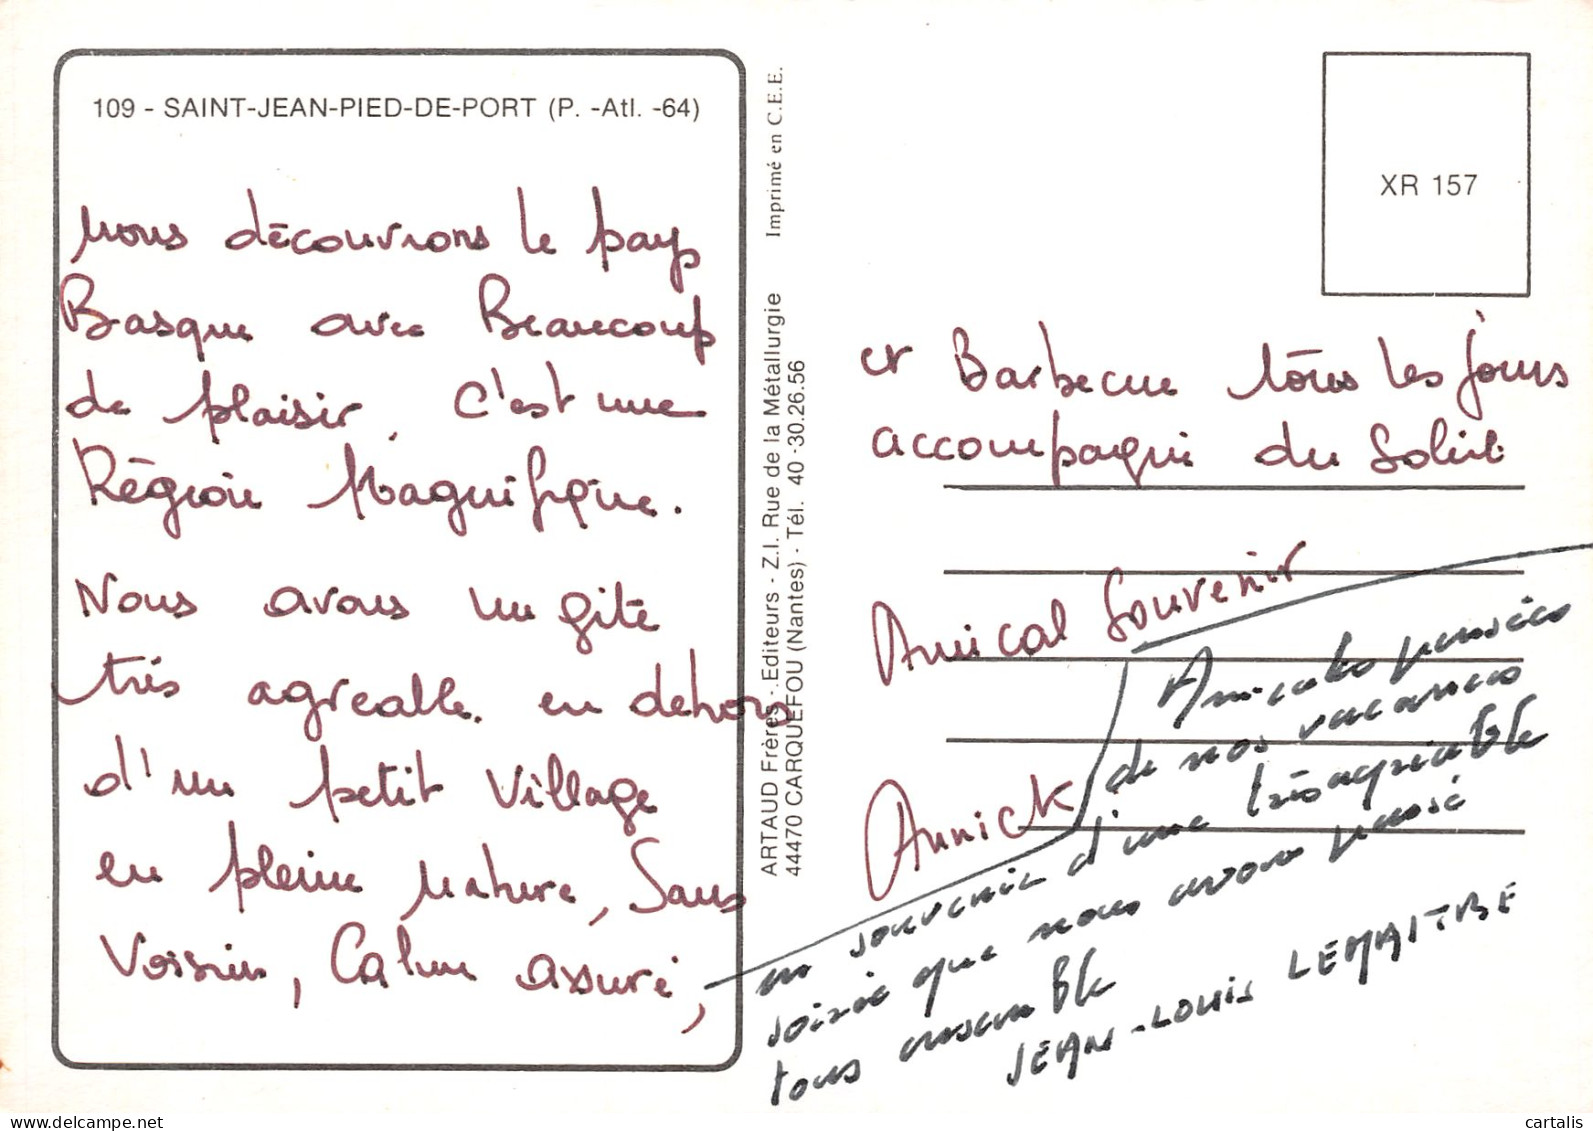 109 - SAINT-JEAN-PIED-DE-PORT (P. -Atl. -64)
Nous découvrons le pays
Basque avec Beaucoup
de plaisir, c'est une
Région Magnifique.
Nous avons un gîte
très agreable. en dehors
d'un petit village
en pleine Nature, Sans
Voisin, Calme assuré,
Imprimé en C.E.E.
ARTAUD Frères - Editeurs - Z.I. Rue de la Métallurgie
44470 CARQUEFOU (Nantes) - Tél. 40 -30.26.56
XR 157
et Barbecue tous les jours
accompagné du Soleil
Amical Souvenir
Annick
Amicales pensées
de nos vacances
en souvenir d'une très agréable
soirée que nous avons passé
tous ensemble
JEAN-LOUIS LEMAITRE
cartalis
delcampe.net